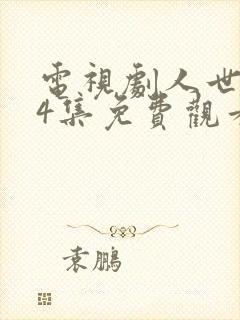 電視劇人世
4集免費觀
袁鵬